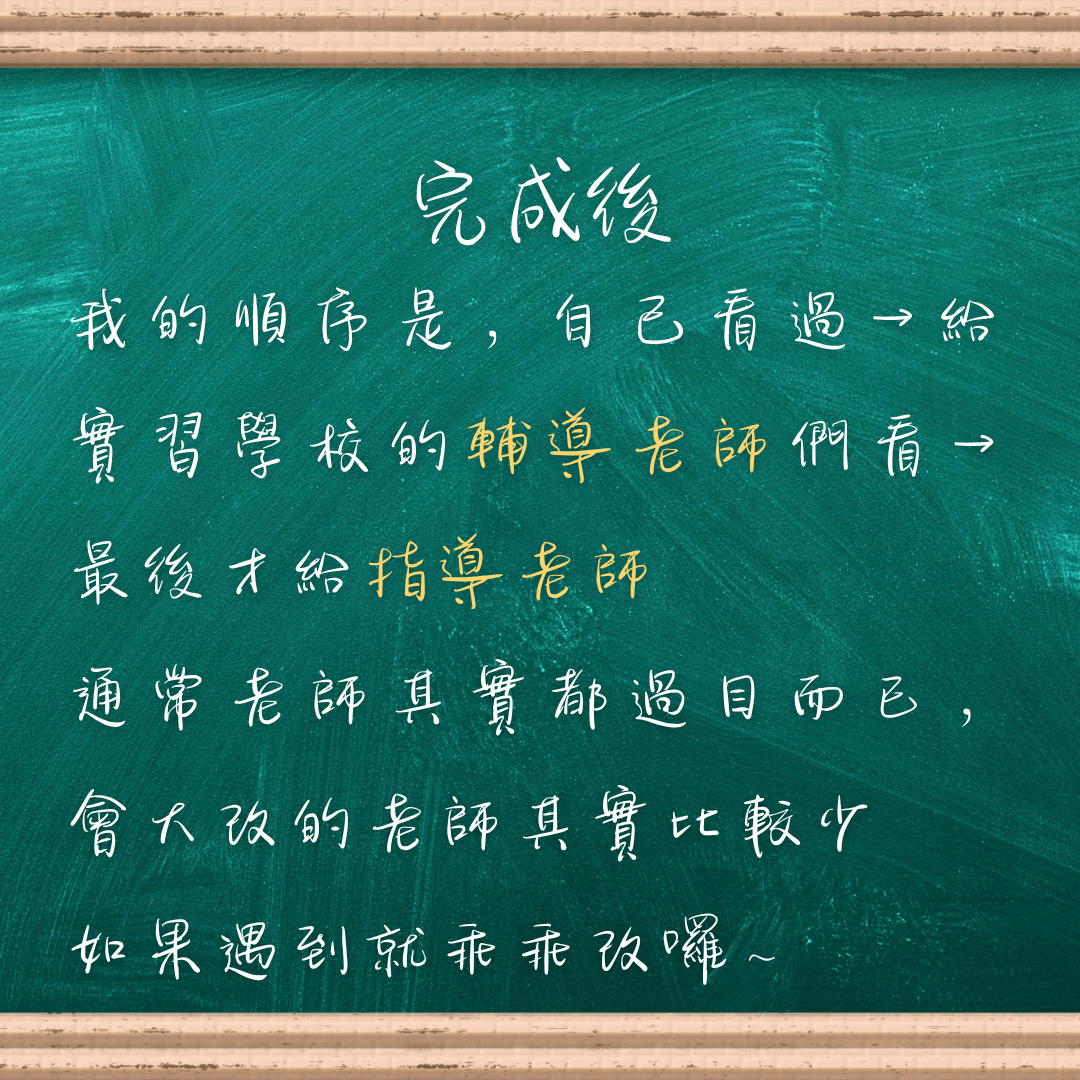 完成後
我的順序是，自己看過→給
實習學校的輔導老師們看→
最後才給指導老師
通常老師其實都過目而已，
會大改的老師其實比較少
如果遇到就乖乖改囉~